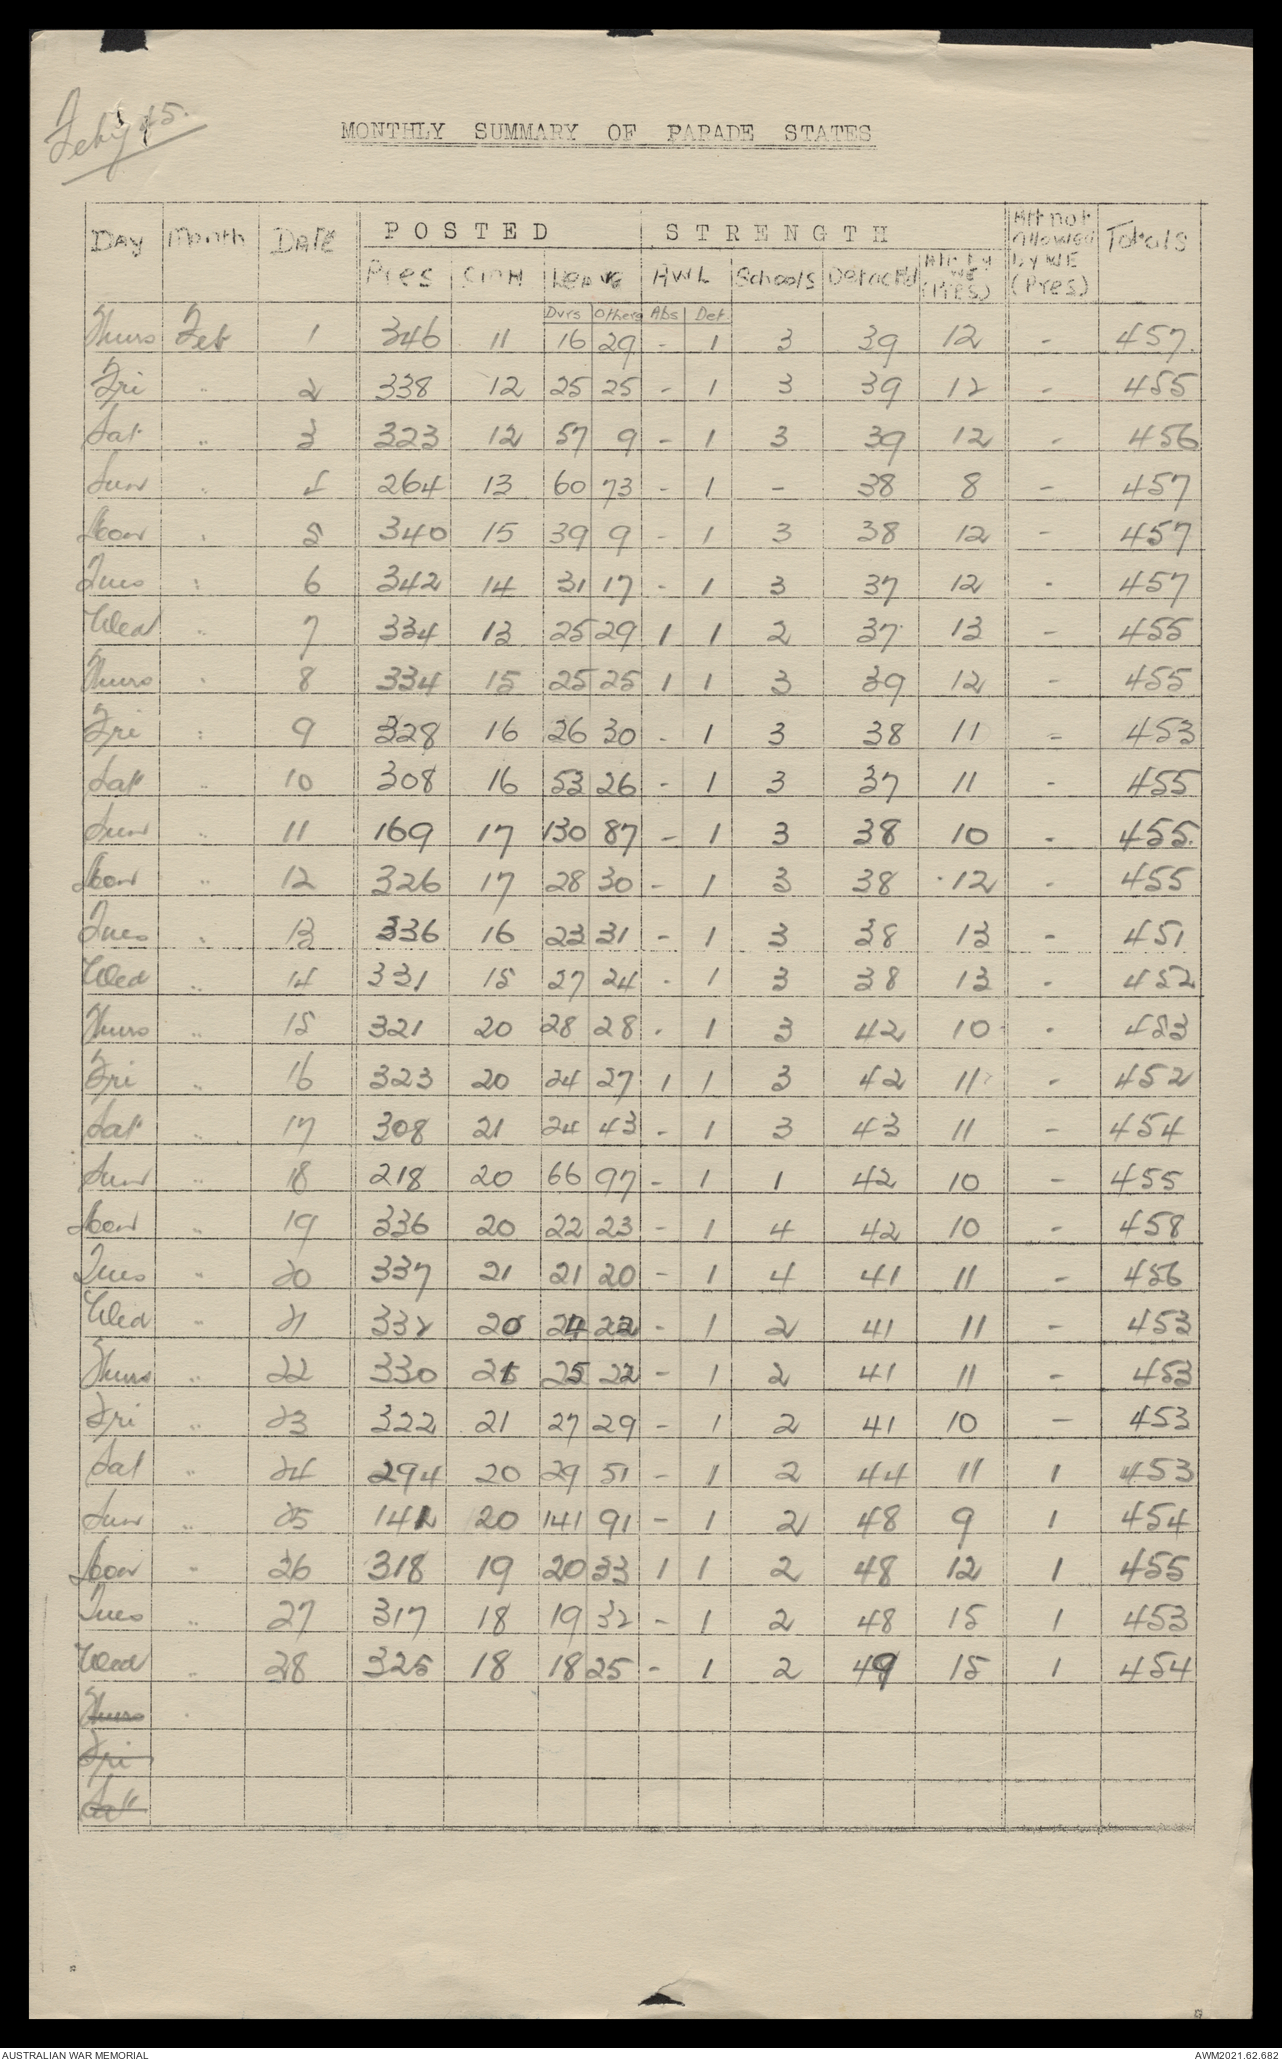 Feby 45.
MONTHLY SUMMARY OF PARADE STATES
DAY Month DATE POSTED STRENGTH Att not allowed by WE (Pres) Totals
Pres CinH Leave AWL Schools Detach'd Att. by WE (PRES)
Dvrs Others Abs Det
Thurs Feb 1 346 11 16 29 - 1 3 39 12 - 457.
Fri " 2 338 12 25 25 - 1 3 39 12 - 455
Sat " 3 323 12 57 9 - 1 3 39 12 - 456
Sun " 4 264 13 60 73 - 1 - 38 8 - 457
Mon " 5 340 15 39 9 - 1 3 38 12 - 457
Tues " 6 342 14 31 17 - 1 3 37 12 - 457
Wed " 7 334 13 25 29 1 1 2 37 13 - 455
Thurs " 8 334 15 25 25 1 1 3 39 12 - 455
Fri " 9 328 16 26 30 - 1 3 38 11 - 453
Sat " 10 308 16 53 26 - 1 3 37 11 - 455
Sun " 11 169 17 130 87 - 1 3 38 10 - 455.
Mon " 12 326 17 28 30 - 1 3 38 12 - 455
Tues " 13 336 16 23 31 - 1 3 38 13 - 451
Wed " 14 331 15 27 24 - 1 3 38 13 - 452
Thurs " 15 321 20 28 28 - 1 3 42 10 - 453
Fri " 16 323 20 24 27 1 1 3 42 11 - 452
Sat " 17 308 21 24 43 - 1 3 43 11 - 454
Sun " 18 218 20 66 97 - 1 1 42 10 - 455
Mon " 19 336 20 22 23 - 1 4 42 10 - 458
Tues " 20 337 21 21 20 - 1 4 41 11 - 456
Wed " 21 332 20 24 22 - 1 2 41 11 - 453
Thurs " 22 330 21 25 22 - 1 2 41 11 - 453
Fri " 23 322 21 27 29 - 1 2 41 10 - 453
Sat " 24 294 20 29 51 - 1 2 44 11 1 453
Sun " 25 141 20 141 91 - 1 2 48 9 1 454
Mon " 26 318 19 20 33 1 1 2 48 12 1 455
Tues " 27 317 18 19 32 - 1 2 48 15 1 453
Wed " 28 325 18 18 25 - 1 2 49 15 1 454
Thurs
Fri
Sat
AUSTRALIAN WAR MEMORIAL AWM2021.62.682